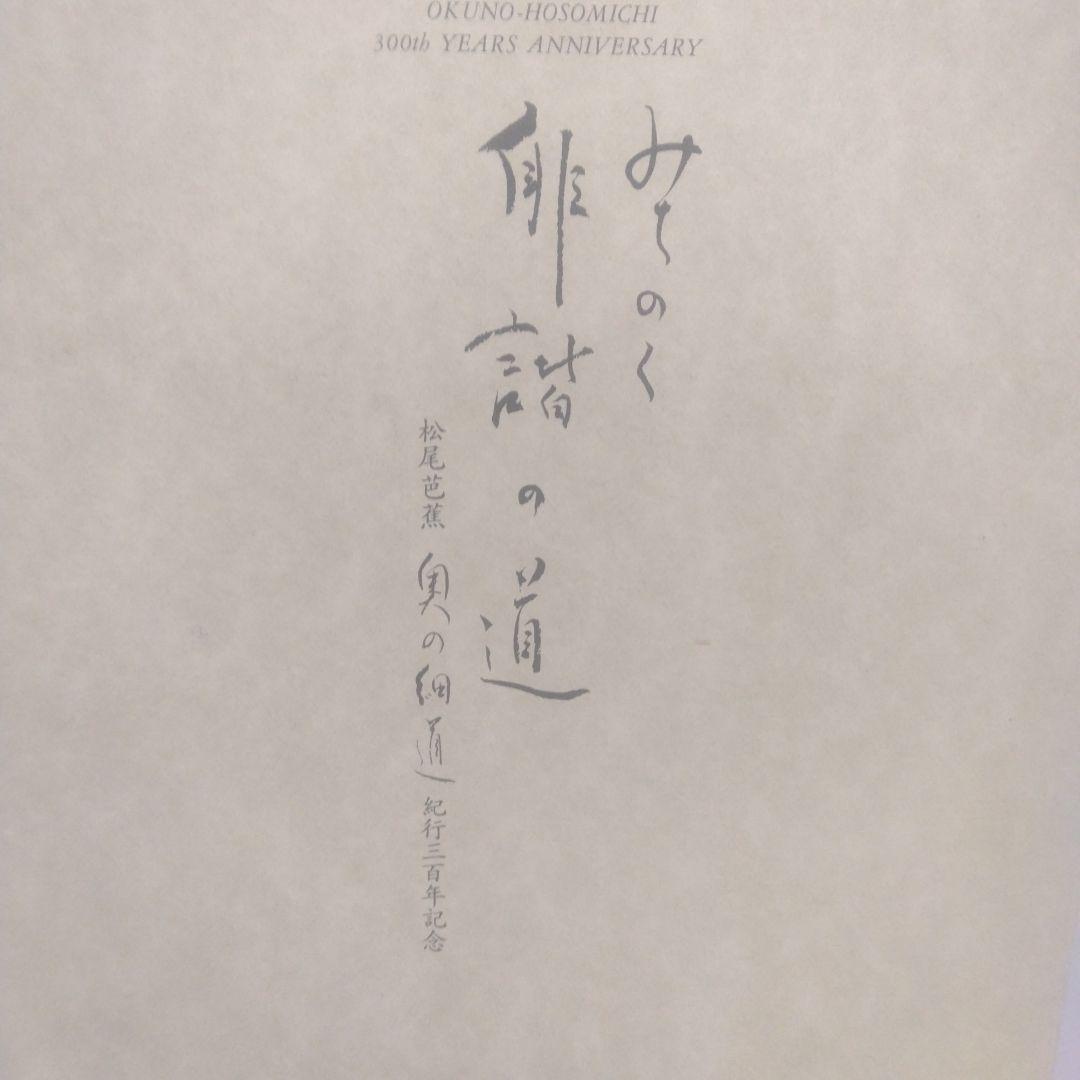 OKUNO-HOSOMICHI
300th YEARS ANNIVERSARY
みちのく
俳諧の道
松尾芭蕉 奥の細道 紀行三百年記念